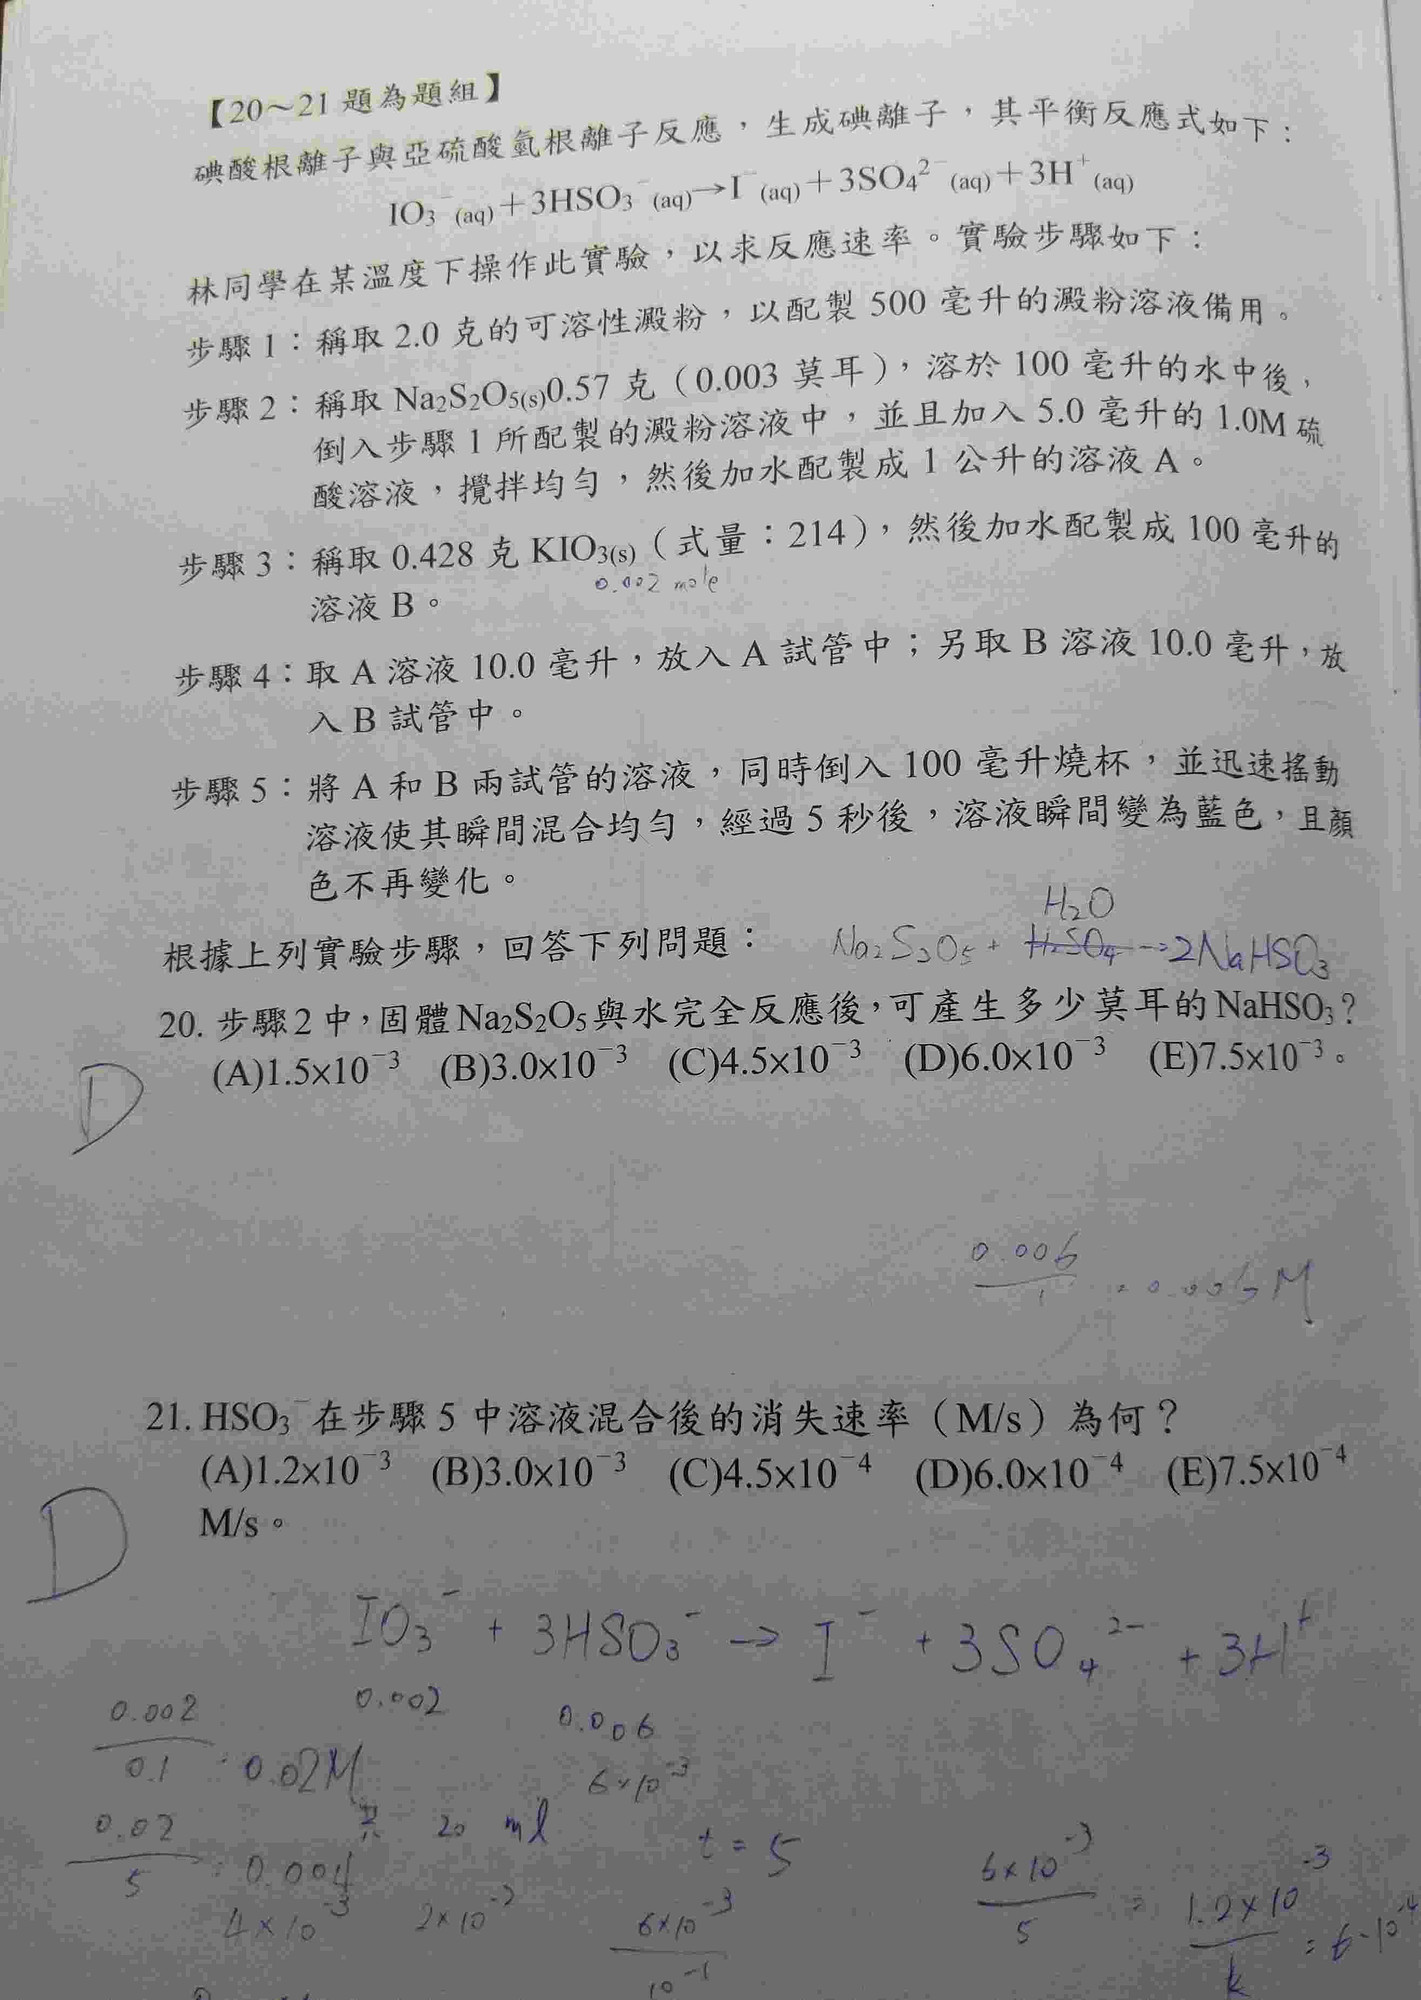 【20～21 題為題組】
碘酸根離子與亞硫酸氫根離子反應，生成碘離子，其平衡反應式如下：
IO₃⁻(aq)＋3HSO₃⁻(aq)→I⁻(aq)＋3SO₄²⁻(aq)＋3H⁺(aq)
林同學在某溫度下操作此實驗，以求反應速率。實驗步驟如下：
步驟 1：稱取 2.0 克的可溶性澱粉，以配製 500 毫升的澱粉溶液備用。
步驟 2：稱取 Na₂S₂O₅(s)0.57 克（0.003 莫耳），溶於 100 毫升的水中後，
倒入步驟 1 所配製的澱粉溶液中，並且加入 5.0 毫升的 1.0M 硫
酸溶液，攪拌均勻，然後加水配製成 1 公升的溶液 A。
步驟 3：稱取 0.428 克 KIO₃(s)（式量：214），然後加水配製成 100 毫升的
0.002 mole
溶液 B。
步驟 4：取 A 溶液 10.0 毫升，放入 A 試管中；另取 B 溶液 10.0 毫升，放
入 B 試管中。
步驟 5：將 A 和 B 兩試管的溶液，同時倒入 100 毫升燒杯，並迅速搖動
溶液使其瞬間混合均勻，經過 5 秒後，溶液瞬間變為藍色，且顏
色不再變化。
H₂O
根據上列實驗步驟，回答下列問題： Na₂S₂O₅ + H₂SO₄ → 2NaHSO₃
20. 步驟 2 中，固體 Na₂S₂O₅ 與水完全反應後，可產生多少莫耳的 NaHSO₃？
(A)1.5×10⁻³ (B)3.0×10⁻³ (C)4.5×10⁻³ (D)6.0×10⁻³ (E)7.5×10⁻³。
D
0.006
1 = 0.006M
21. HSO₃⁻ 在步驟 5 中溶液混合後的消失速率（M/s）為何？
(A)1.2×10⁻³ (B)3.0×10⁻³ (C)4.5×10⁻⁴ (D)6.0×10⁻⁴ (E)7.5×10⁻⁴
M/s。
D
IO₃⁻ + 3HSO₃⁻ → I⁻ + 3SO₄²⁻ + 3H⁺
0.002 0.002 0.006
0.1 = 0.02M 6×10⁻³
0.02 共 20 ml t = 5
5 = 0.004
4×10⁻³
6×10⁻³
10⁻¹
6×10⁻³
5 = 1.2×10⁻³
= 6·10⁻⁴